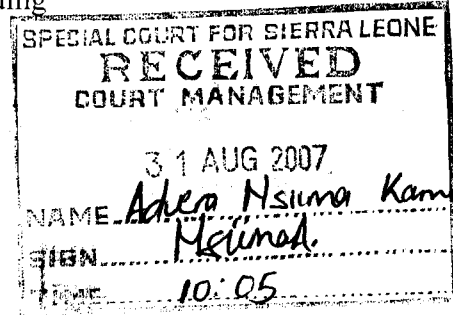 SPECIAL COURT FOR SIERRA LEONE
RECEIVED
COURT MANAGEMENT
31 AUG 2007
NAME Advera Nsiima Kam
SIGN NsiimaA.
TIME 10:05